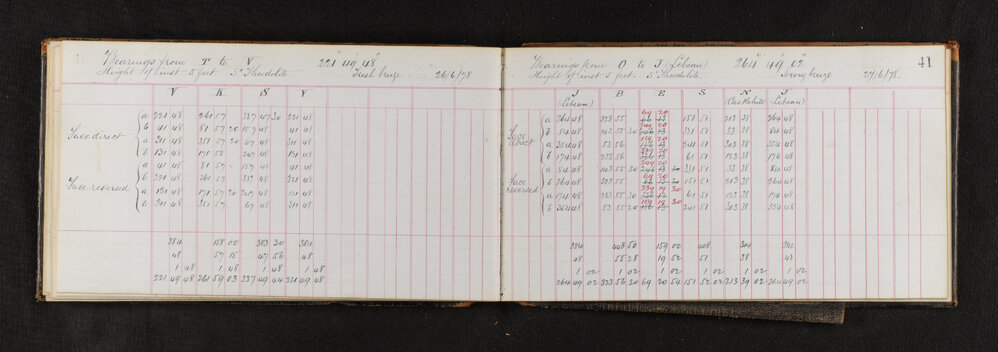 Bearings from T to V 221° 49' 48"
Height of inst 5 feet 5" Theodolite Fresh breeze 26/6/78
V R S V
Face direct
a 221 48 261 57 337 47 30 221 48
b 41 48 81 57 20 157 48 41 48
a 311 48 351 57 20 67 48 311 48
b 131 48 171 58 247 48 131 48
Face reversed
a 41 48 81 57 157 48 41 48
b 221 48 261 57 337 48 221 48
a 131 48 171 57 20 247 48 131 48
b 311 48 351 57 67 48 311 48
384 158 00 383 30 384
48 57 15 47 56 48
1 48 1 48 1 48 1 48
221 49 48 261 59 03 337 49 44 221 49 48
Bearings from O to J (Lebeau) 264° 49' 02 41
Height of inst 5 feet 5" Theodolite Strong breeze 27/6/78.
J B E S N J
(Lebeau) (Castlehill) (Lebeau)
Face direct
69 20
a 264 48 323 55 66 13 151 51 213 38 264 48
249 20
b 84 48 143 55 30 246 13 331 51 33 38 84 48
159 20
a 354 48 53 56 156 13 241 51 303 38 354 48
339 20
b 174 48 233 56 336 13 61 51 123 38 174 48
Face reversed
249 20
a 84 48 143 55 30 246 13 331 51 33 38 84 48
69 20
b 264 48 323 55 66 13 151 51 213 38 264 48
339 19 30
a 174 48 233 55 30 336 13 61 51 123 38 174 48
159 19 30
b 354 48 53 55 20 156 13 241 51 303 38 354 48
384 443 50 159 00 408 304 384
48 55 28 19 52 51 38 48
1 02 1 02 1 02 1 02 1 02 1 02
264 49 02 323 56 30 69 20 54 151 52 02 213 39 02 264 49 02